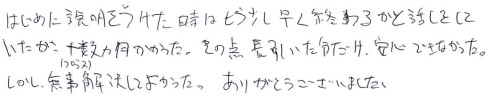 はじめに説明をうけた時はもう少し早く終わるかと話しをして
いたが、十数ヵ月かかった。その点長引いた分だけ、安心できなかった。
しかし、無事解決してよかった。ありがとうございました